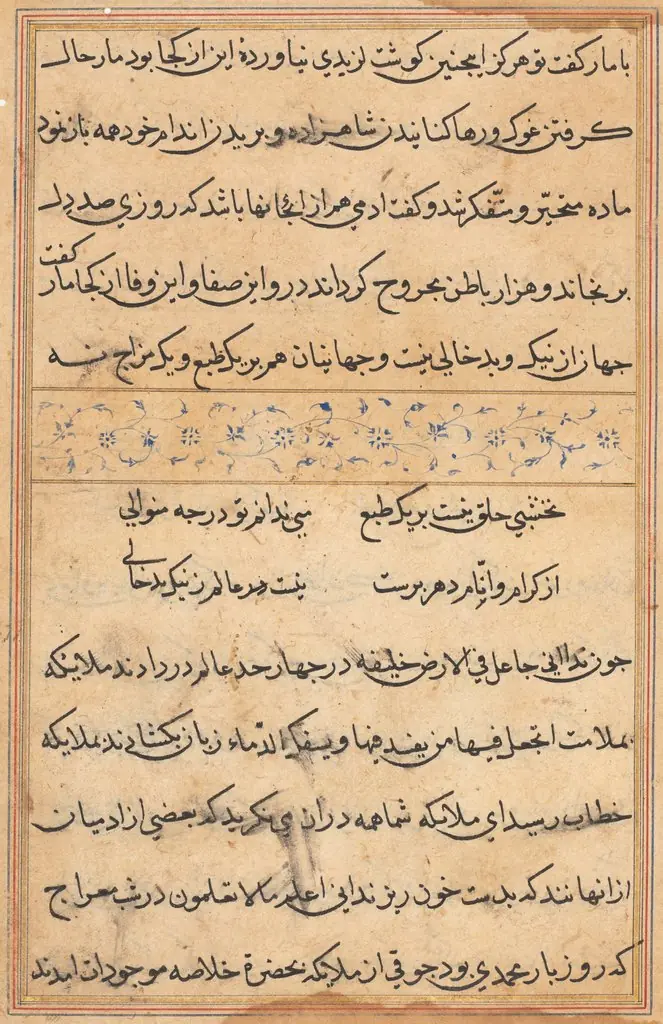 با مار کفت تو هرکز اینجنین کوشت لزیدی نیاوردۀ این از کجا بود مار حال
کرفتن غوک و رها کنانیدن شاهزاده و بریدن اندام خود همه بازنمود
ماده متحیّر و متّفکر شد و کفت ادمی هم از انجانها باشد که روزی صد دل
برنجاند و هزار باطن مجروح کرداند درو این صفا و این وفا از کجا مار کفت
جهان از نیک و بد خالی نیست و جهانیان هم بر یک طبع و یک مزاج نه
نخشبی خلق نیست بر یک طبع
می ندانم تو در جه منوالی
از کرام و ایّام دهر برست
نیست عالم ز نیک بد خالی
جون ندا انی جاعل فی الارض خلیفه در جهار حد عالم در دادند ملایکه
بملامت اتجعل فیها من یفسد فیها ویسفک الدّماء زبان بکشادند بملایکه
خطاب رسید ای ملائکه شما همه دران می نکرید که بعضی از ادمیان
از انهانند که بدست خون ریزند انی اعلم مالا تعلمون در شب معراج
که روز بار محمدی بود جوقی از ملایکه بحضرة خلاصه موجودات امدند